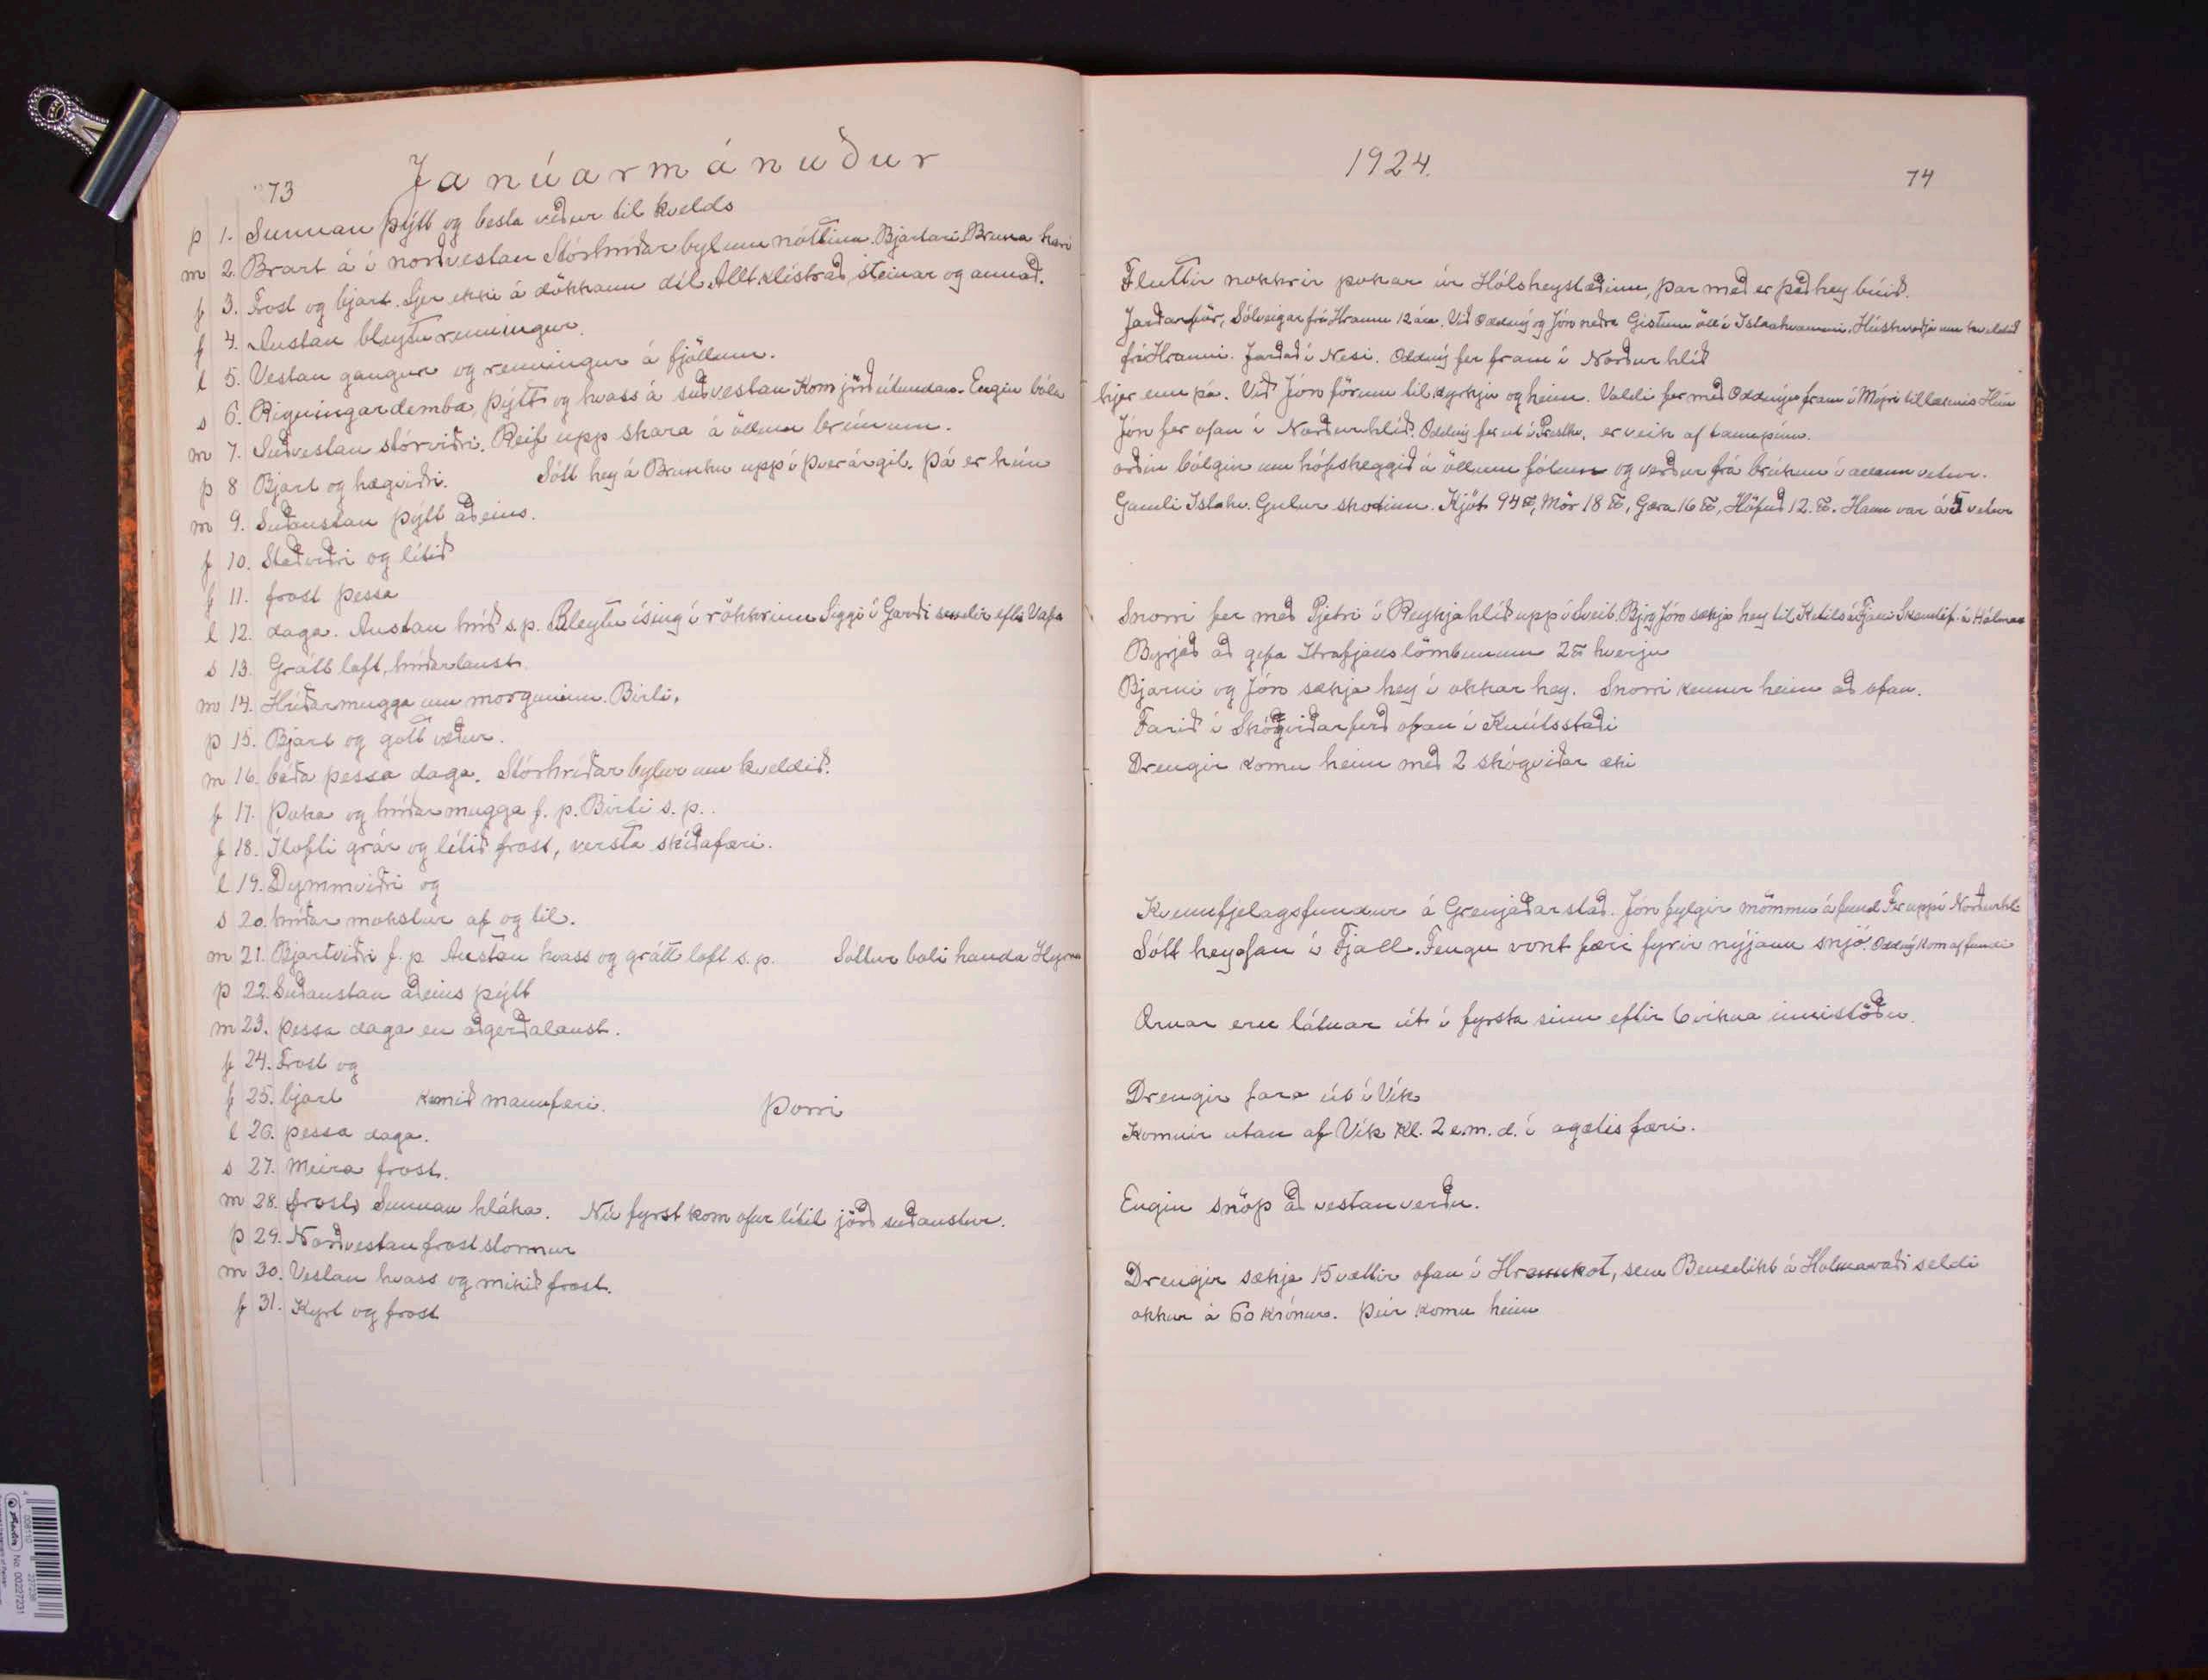 73 Janúarmánuður
þ 1. Sunnan þýtt og besta veður til kvelds
m 2. Brast á í norðvestan Stórhríðarbyl um nóttina. Bjartari. Bruna
f 3. Frost og bjart. Sjer ekki á dökkann díl. Allt klístrað, steinar og annað.
f 4. Austan bleyturenningur.
l 5. Vestan gangur og renningur á fjöllum.
s 6. Rigningardemba, þýtt og hvass á suðvestan. Kom jörð útundan. Engin bóla
m 7. Suðvestan stórviðri. Reif upp skara á öllum brúnum.
þ 8 Bjart og hægviðri. Sótt hey á Brunku upp í Þverárgil. Þá er hún
m 9. Suðaustan þýtt aðeins.
f 10. Staðviðri og lítið
f 11. frost þessa
l 12. daga. Austan hríð s.p. Bleytu ísing í rökkrinu Siggi í Garði eftir
s 13. Grátt loft, hríðarlaust.
m 14. Hríðarmugga um morguninn. Birti.
þ 15. Bjart og gott veður.
m 16. báða þessa daga. Stórhríðarbylur um kveldið.
f 17. Þoka og hríðarmugga f. p. Birti s. p.
f 18. Ílofti grár og lítið frost, versta skíðafæri.
l 19. Dymmviðri og
s 20. hríðar mokstur af og til.
m 21. Bjartviðri f. p. Austan hvass og grátt loft s. p. Sóttur boli handa
þ 22. Suðaustan aðeins þýtt
m 23. þessa daga en aðgerðalaust.
f 24. Frost og
f 25. bjart komið mannfæri. Þorri
l 26. þessa daga.
s 27. Meira frost.
m 28. frost, Sunnan hláka. Nú fyrst kom ofur lítil jörð suðaustur.
þ 29. Norðvestan froststormur
m 30. Vestan hvass og mikið frost.
f 31. Kyrt og frost
1924.
74
Fluttir nokkrir pokar úr Hólsheystæðinu, þar með er það hey búið.
Jarðarför, Sólveigar frá Hraun 12 ára. Við Oddný og Jón neðra Gistum öll í Húskveðja um kveldið
frá Hrauni. Jarðað í Nesi. Oddný fer fram í Norðurhlíð
hjer enn þá. Við Jón förum til kyrkju og heim. Valdi fer með Oddnýju fram í Mýri til læknis Hún
Jón fer ofan í Norðurhlíð. Oddný fer út í Presthv. er veik af tannpínu.
orðin bólgin um hófskeggið á öllum fótum og verður frá brúkun í allann vetur.
Gamli Gulur skotinn. Kjöt 94 ℔, Mör 18 ℔, Gæra 16 ℔, Höfuð 12. ℔. Hann var á 5 vetur
Snorri fer með Pjetri í Reykjahlíð upp í Sveit. Bj og Jón sækja hey til Ketils á Fjalli
Byrjað að gefa lömbunum 2 ℔ hverju
Bjarni og Jón sækja hey í okkar hey. Snorri kemur heim að ofan.
Farið í Skógviðarferð ofan í Knútsstaði
Drengir komu heim með 2 skógviðar æki
Kvennfjelagsfundur á Grenjaðarstað. Jón fylgir mömmu á fund Fer upp í Norðurhl
Sótt hey ofan í Fjall. Fengu vont færi fyrir nýjann snjó. Oddný kom af fundi
Ærnar eru látnar út í fyrsta sinn eftir 6 vikna innistöðu.
Drengir fara út í Vík
Komnir utan af Vík Kl. 2 e.m.d. í agætis færi.
Engin snöp að vestanverðu.
Drengir sækja 15 vættir ofan í Hraunkot, sem Benedikt á Hólmavaði seldi
okkur á 60 krónur. Þeir komu heim